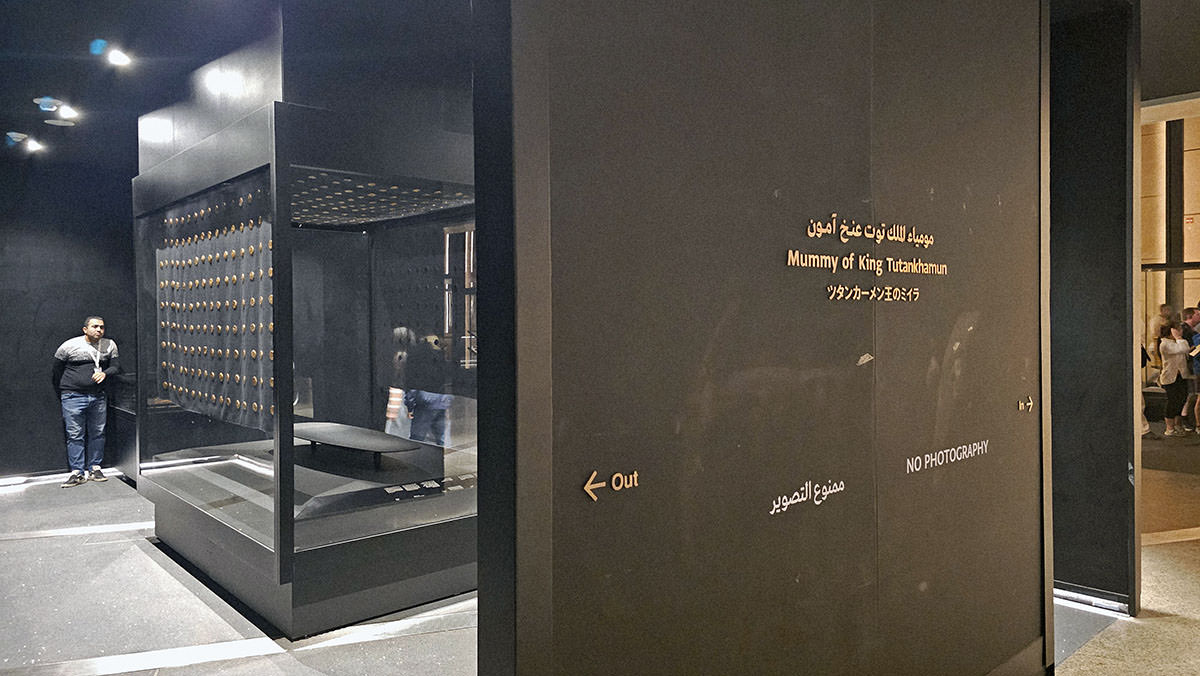 مومياء الملك توت عنخ آمون
Mummy of King Tutankhamun
ツタンカーメン王のミイラ
In →
← Out
ممنوع التصوير
NO PHOTOGRAPHY